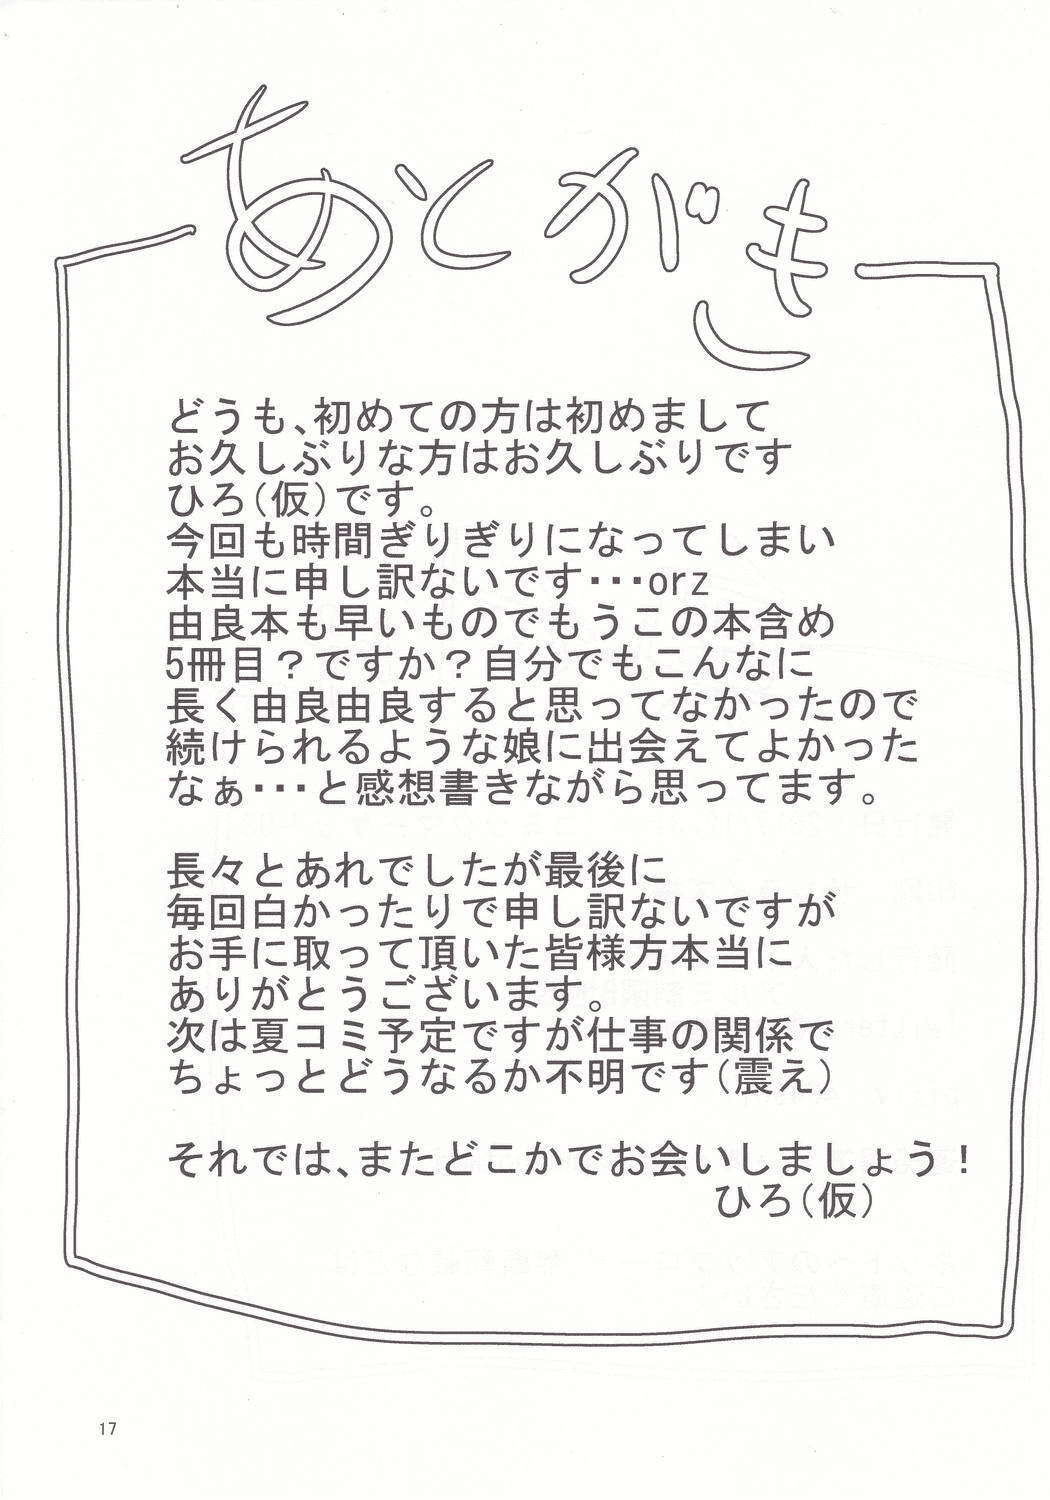 あとがき
どうも、初めての方は初めまして
お久しぶりな方はお久しぶりです
ひろ(仮)です。
今回も時間ぎりぎりになってしまい
本当に申し訳ないです・・・orz
由良本も早いものでもうこの本含め
5冊目?ですか?自分でもこんなに
長く由良由良すると思ってなかったので
続けられるような娘に出会えてよかった
なぁ・・・と感想書きながら思ってます。
長々とあれでしたが最後に
毎回白かったりで申し訳ないですが
お手に取って頂いた皆様方本当に
ありがとうございます。
次は夏コミ予定ですが仕事の関係で
ちょっとどうなるか不明です(震え)
それでは、またどこかでお会いしましょう!
ひろ(仮)
17